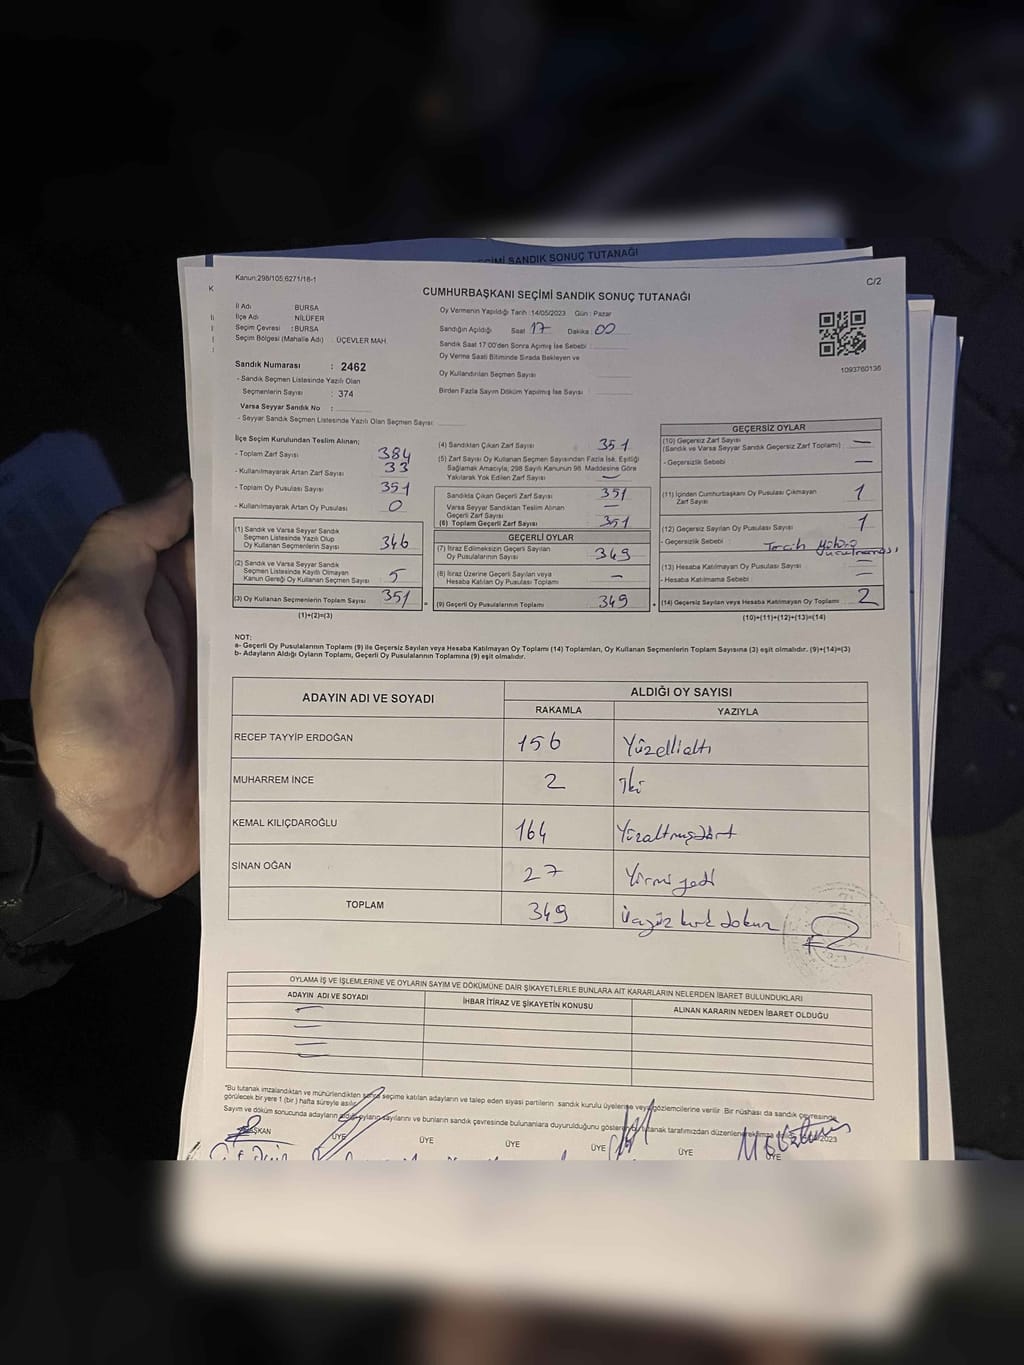 SEÇİMİ SANDIK SONUÇ TUTANAĞI
Kanun:298/105;6271/18-1
C/2
CUMHURBAŞKANI SEÇİMİ SANDIK SONUÇ TUTANAĞI
İl Adı BURSA
İlçe Adı NİLÜFER
Seçim Çevresi : BURSA
Seçim Bölgesi (Mahalle Adı) : ÜÇEVLER MAH.
Oy Vermenin Yapıldığı Tarih : 14/05/2023 Gün : Pazar
Sandığın Açıldığı Saat 17 Dakika : 00
Sandık Saat 17:00'den Sonra Açılmış İse Sebebi :
Oy Verme Saati Bitiminde Sırada Bekleyen ve
Oy Kullandırılan Seçmen Sayısı
Birden Fazla Sayım Döküm Yapılmış İse Sayısı :
1093760136
Sandık Numarası : 2462
- Sandık Seçmen Listesinde Yazılı Olan
Seçmenlerin Sayısı : 374
Varsa Seyyar Sandık No :
- Seyyar Sandık Seçmen Listesinde Yazılı Olan Seçmen Sayısı:
İlçe Seçim Kurulundan Teslim Alınan;
- Toplam Zarf Sayısı 384
- Kullanılmayarak Artan Zarf Sayısı 33
- Toplam Oy Pusulası Sayısı 351
- Kullanılmayarak Artan Oy Pusulası 0
(1) Sandık ve Varsa Seyyar Sandık
Seçmen Listesinde Yazılı Olup
Oy Kullanan Seçmenlerin Sayısı 346
(2) Sandık ve Varsa Seyyar Sandık
Seçmen Listesinde Kayıtlı Olmayan
Kanun Gereği Oy Kullanan Seçmen Sayısı 5
(3) Oy Kullanan Seçmenlerin Toplam Sayısı 351
(1)+(2)=(3)
(4) Sandıktan Çıkan Zarf Sayısı 351
(5) Zarf Sayısı Oy Kullanan Seçmen Sayısından Fazla İse, Eşitliği
Sağlamak Amacıyla, 298 Sayılı Kanunun 98. Maddesine Göre
Yakılarak Yok Edilen Zarf Sayısı —
Sandıkta Çıkan Geçerli Zarf Sayısı 351
Varsa Seyyar Sandıktan Teslim Alınan
Geçerli Zarf Sayısı —
(6) Toplam Geçerli Zarf Sayısı 351
GEÇERLİ OYLAR
(7) İtiraz Edilmeksizin Geçerli Sayılan
Oy Pusulalarının Sayısı 349
(8) İtiraz Üzerine Geçerli Sayılan veya
Hesaba Katılan Oy Pusulası Toplamı —
(9) Geçerli Oy Pusulalarının Toplamı 349
GEÇERSİZ OYLAR
(10) Geçersiz Zarf Sayısı
(Sandık ve Varsa Seyyar Sandık Geçersiz Zarf Toplamı) —
- Geçersizlik Sebebi —
(11) İçinden Cumhurbaşkanı Oy Pusulası Çıkmayan
Zarf Sayısı 1
(12) Geçersiz Sayılan Oy Pusulası Sayısı 1
- Geçersizlik Sebebi : Tercih Mührü
(13) Hesaba Katılmayan Oy Pusulası Sayısı —
- Hesaba Katılmama Sebebi : —
(14) Geçersiz Sayılan veya Hesaba Katılmayan Oy Toplamı 2
(10)+(11)+(12)+(13)=(14)
NOT:
a- Geçerli Oy Pusulalarının Toplamı (9) ile Geçersiz Sayılan veya Hesaba Katılmayan Oy Toplamı (14) Toplamları, Oy Kullanan Seçmenlerin Toplam Sayısına (3) eşit olmalıdır. (9)+(14)=(3)
b- Adayların Aldığı Oyların Toplamı, Geçerli Oy Pusulalarının Toplamına (9) eşit olmalıdır.
ADAYIN ADI VE SOYADI
ALDIĞI OY SAYISI
RAKAMLA YAZIYLA
RECEP TAYYİP ERDOĞAN 156 Yüzellialtı
MUHARREM İNCE 2 İki
KEMAL KILIÇDAROĞLU 164 Yüzaltmışdört
SİNAN OĞAN 27 Yirmi yedi
TOPLAM 349 Üçyüz kırk dokuz
OYLAMA İŞ VE İŞLEMLERİNE VE OYLARIN SAYIM VE DÖKÜMÜNE DAİR ŞİKAYETLERLE BUNLARA AİT KARARLARIN NELERDEN İBARET BULUNDUKLARI
ADAYIN ADI VE SOYADI İHBAR İTİRAZ VE ŞİKAYETİN KONUSU ALINAN KARARIN NEDEN İBARET OLDUĞU
"Bu tutanak imzalandıktan ve mühürlendikten sonra seçime katılan adayların ve talep eden siyasi partilerin sandık kurulu üyelerine veya gözlemcilerine verilir. Bir nüshası da sandık çevresinde
görülecek bir yere 1 (bir) hafta süreyle asılır.
Sayım ve döküm sonucunda adayların aldığı oyların sayılarını ve bunların sandık çevresinde bulunanlara duyurulduğunu gösteren tutanak tarafımızdan düzenlenerek 2023
BAŞKAN ÜYE ÜYE ÜYE ÜYE ÜYE ÜYE